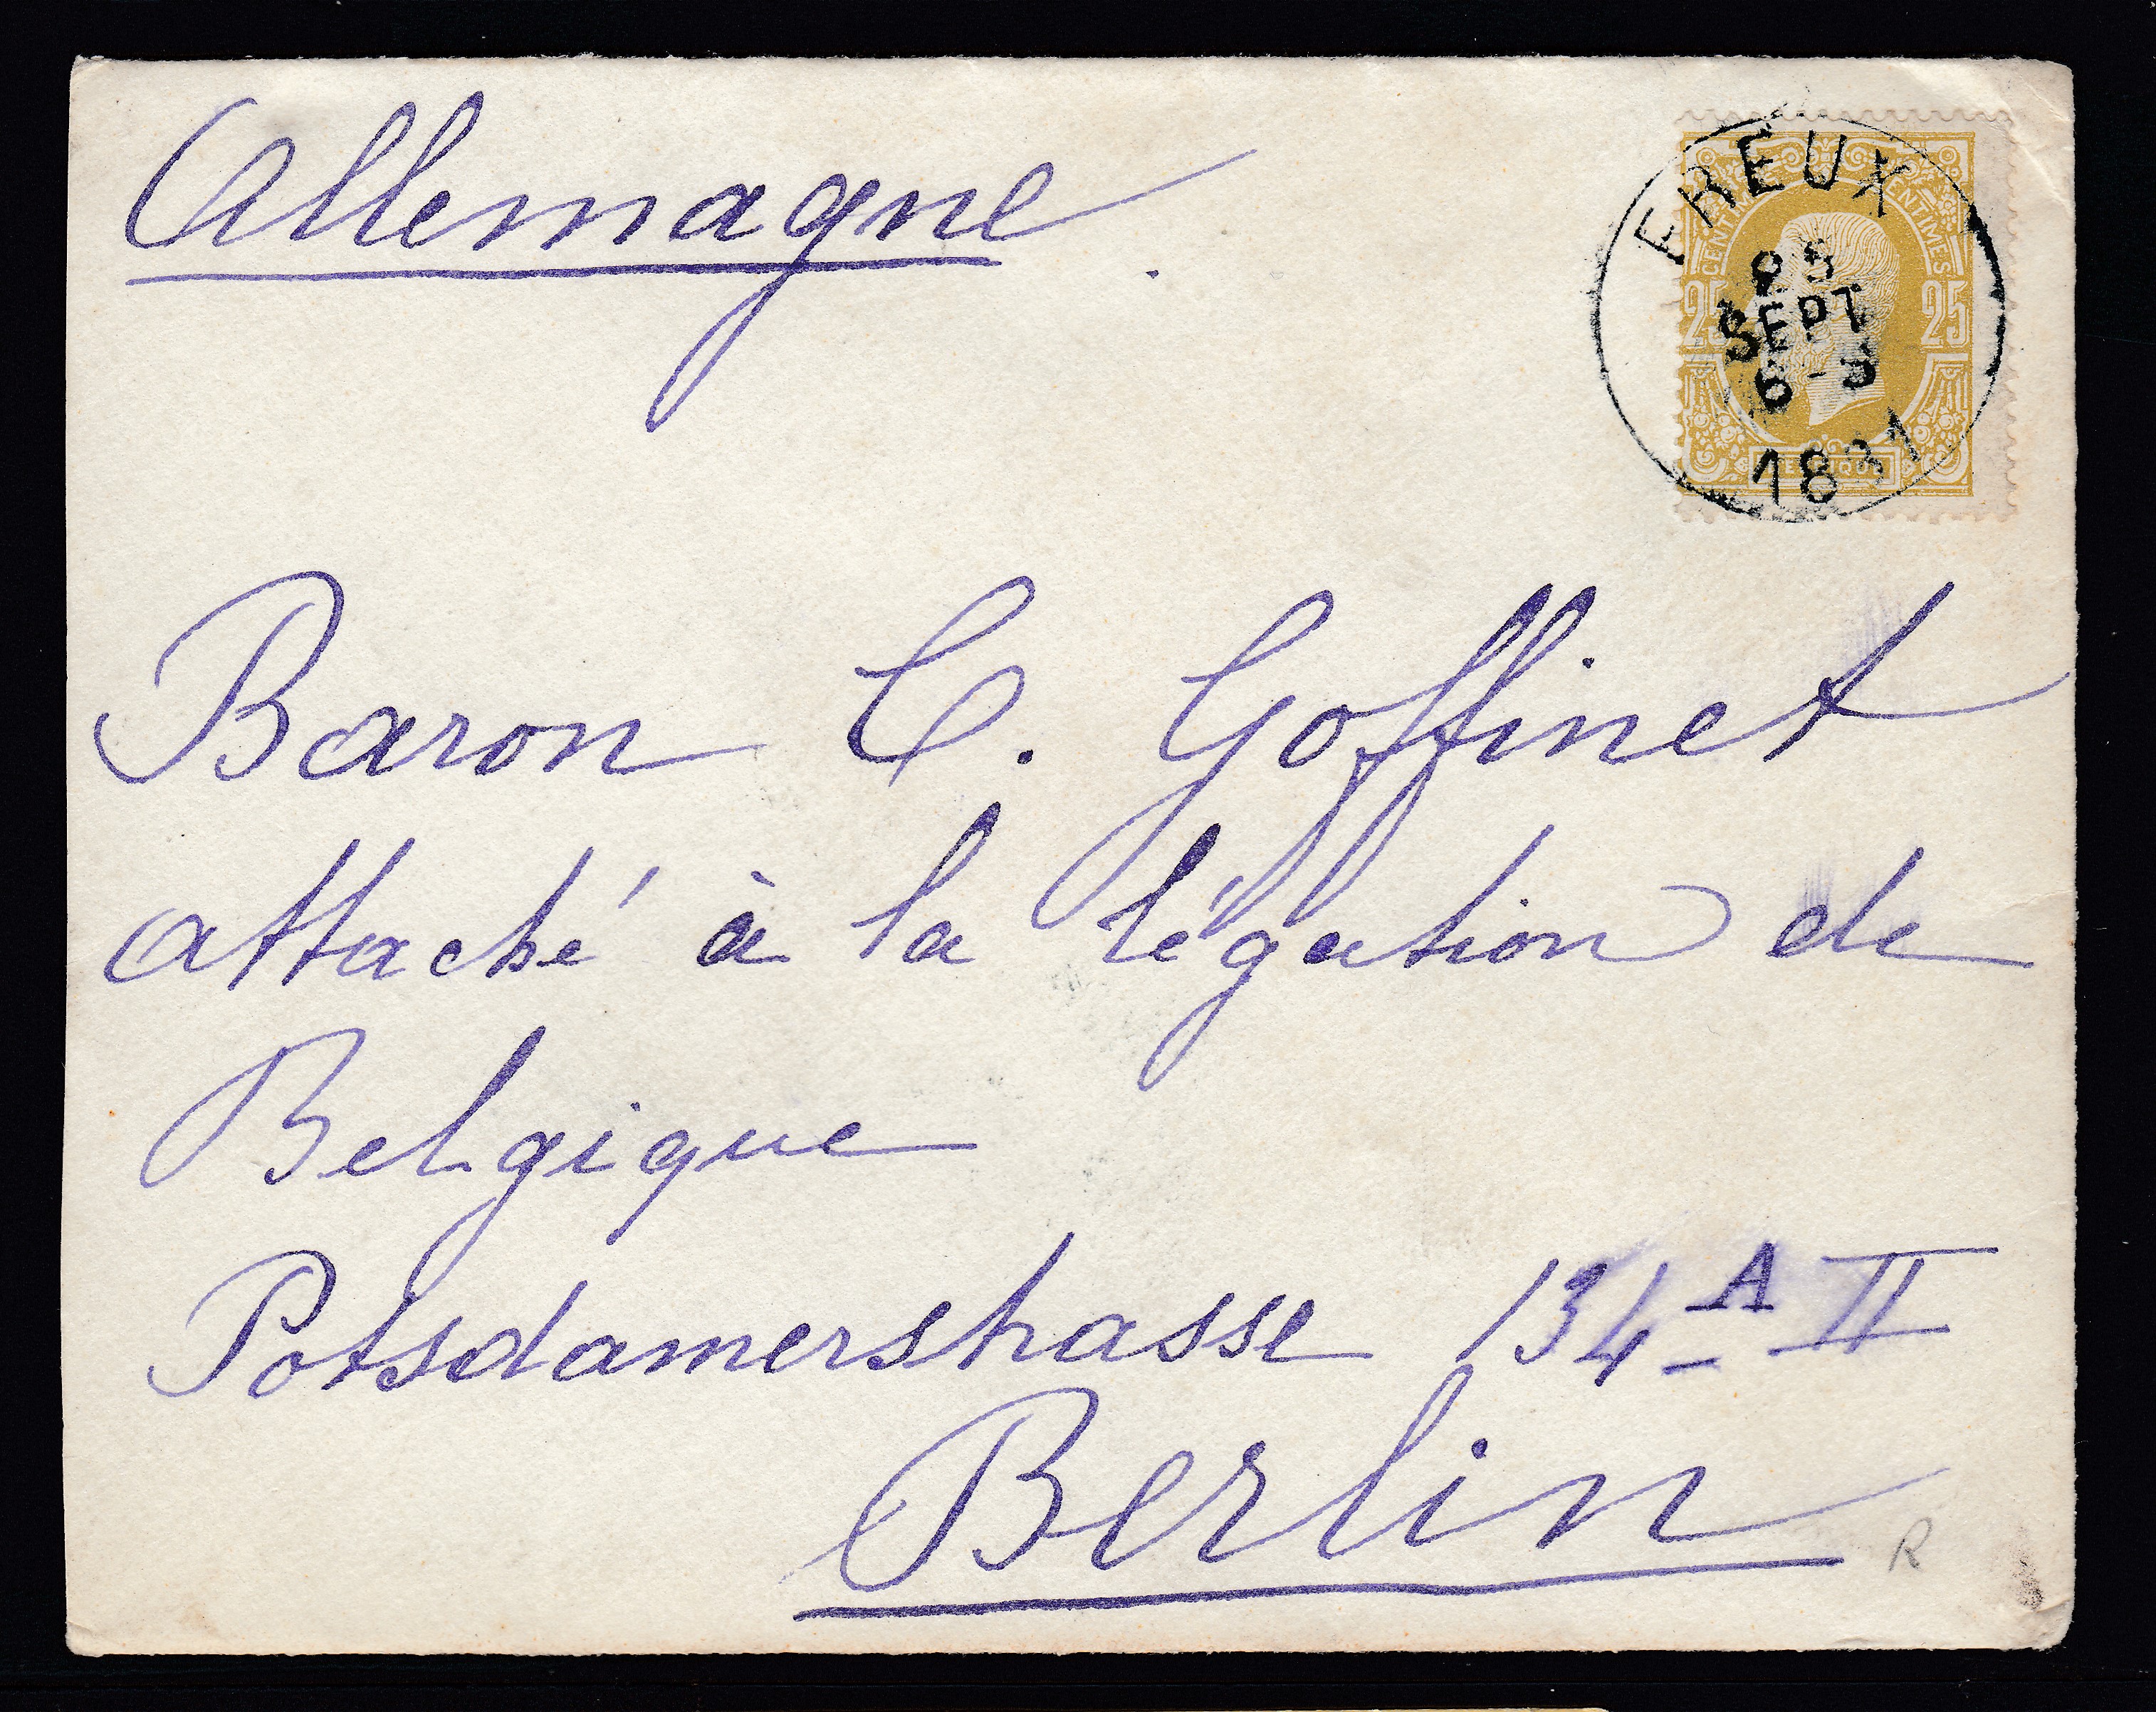 Allemagne
FREUX
25
SEPT
6-3
1881
CENTIMES
25 25
Baron C. Goffinet
attaché à la légation de
Belgique
Potsdamerstrasse 134 A II
Berlin
R